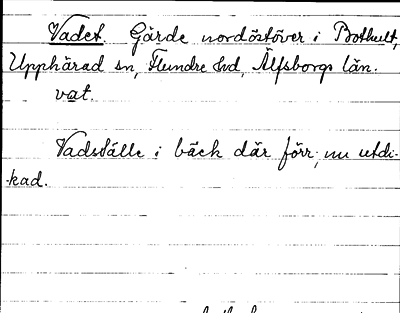 Vadet. Gärde nordöstöver i Bothult,
Upphärad sn, Flundre hd, Älfsborgs län.
vat.
Vadställe i bäck där förr; nu utdi-
kad.